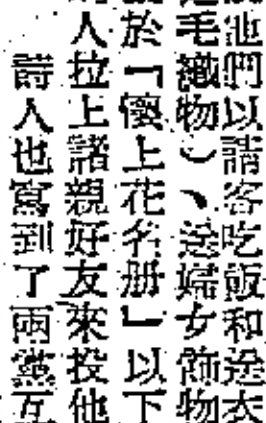 他們以請客吃飯和送衣
毛織物）、送婦女飾物
於「懷上花名册」以下
人拉上諸親好友來投他
詩人也寫到了兩黨互